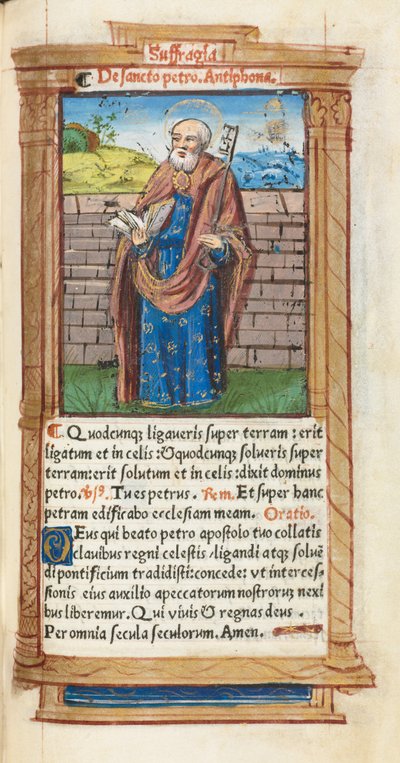 Suffragia
De sancto petro. Antiphona.
Quodcunqȝ ligaveris super terram : erit
ligatum et in celis : & quodcunque solveris super
terram: erit solutum et in celis : dixit dominus
petro. ꝟsꝰ. Tu es petrus . Rem. Et super hanc
petram edificabo ecclesiam meam. Oratio.
DEus qui beato petro apostolo tuo collatis
clavibus regni celestis / ligandi atqȝ solvē
di pontificium tradidisti: concede : vt interces-
sionis eius auxilio a peccatorum nostrorum nexi
bus liberemur. Qui vivis & regnas deus .
Per omnia secula seculorum. Amen.